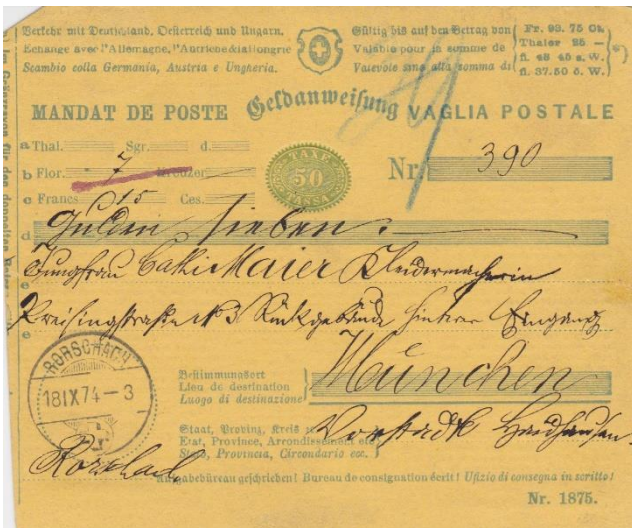 Verkehr mit Deutschland, Oesterreich und Ungarn.
Echange avec l'Allemagne, l'Autriche & la Hongrie
Scambio colla Germania, Austria e Ungheria.
Gültig bis auf den Betrag von
Valable pour la somme de
Valevole sino alla somma di
Fr. 93. 75 Ct.
Thaler 25 —
fl. 43 45 s. W.
fl. 37.50 ö. W.
MANDAT DE POSTE Geldanweisung VAGLIA POSTALE
a Thal. Sgr. d.
b Flor. 7 Kreuzer
c Francs 15 Ces.
TAXE 50 TASSA
Nr. 390
d Gulden sieben
Jungfrau Cathi Maier Kleidermacherin
e Preisingstraße No 3 Rückgebäude hinterer Eingang
RORSCHACH
18 IX 74 — 3
Bestimmungsort
Lieu de destination
Luogo di destinazione
München
Staat, Provinz, Kreis
Etat, Province, Arrondissement etc.
Stato, Provincia, Circondario ecc.
Vorstadt Haidhausen
Rorschach
Aufgabebüreau geschrieben! Bureau de consignation écrit! Ufizio di consegna in scritto!
Nr. 1875.